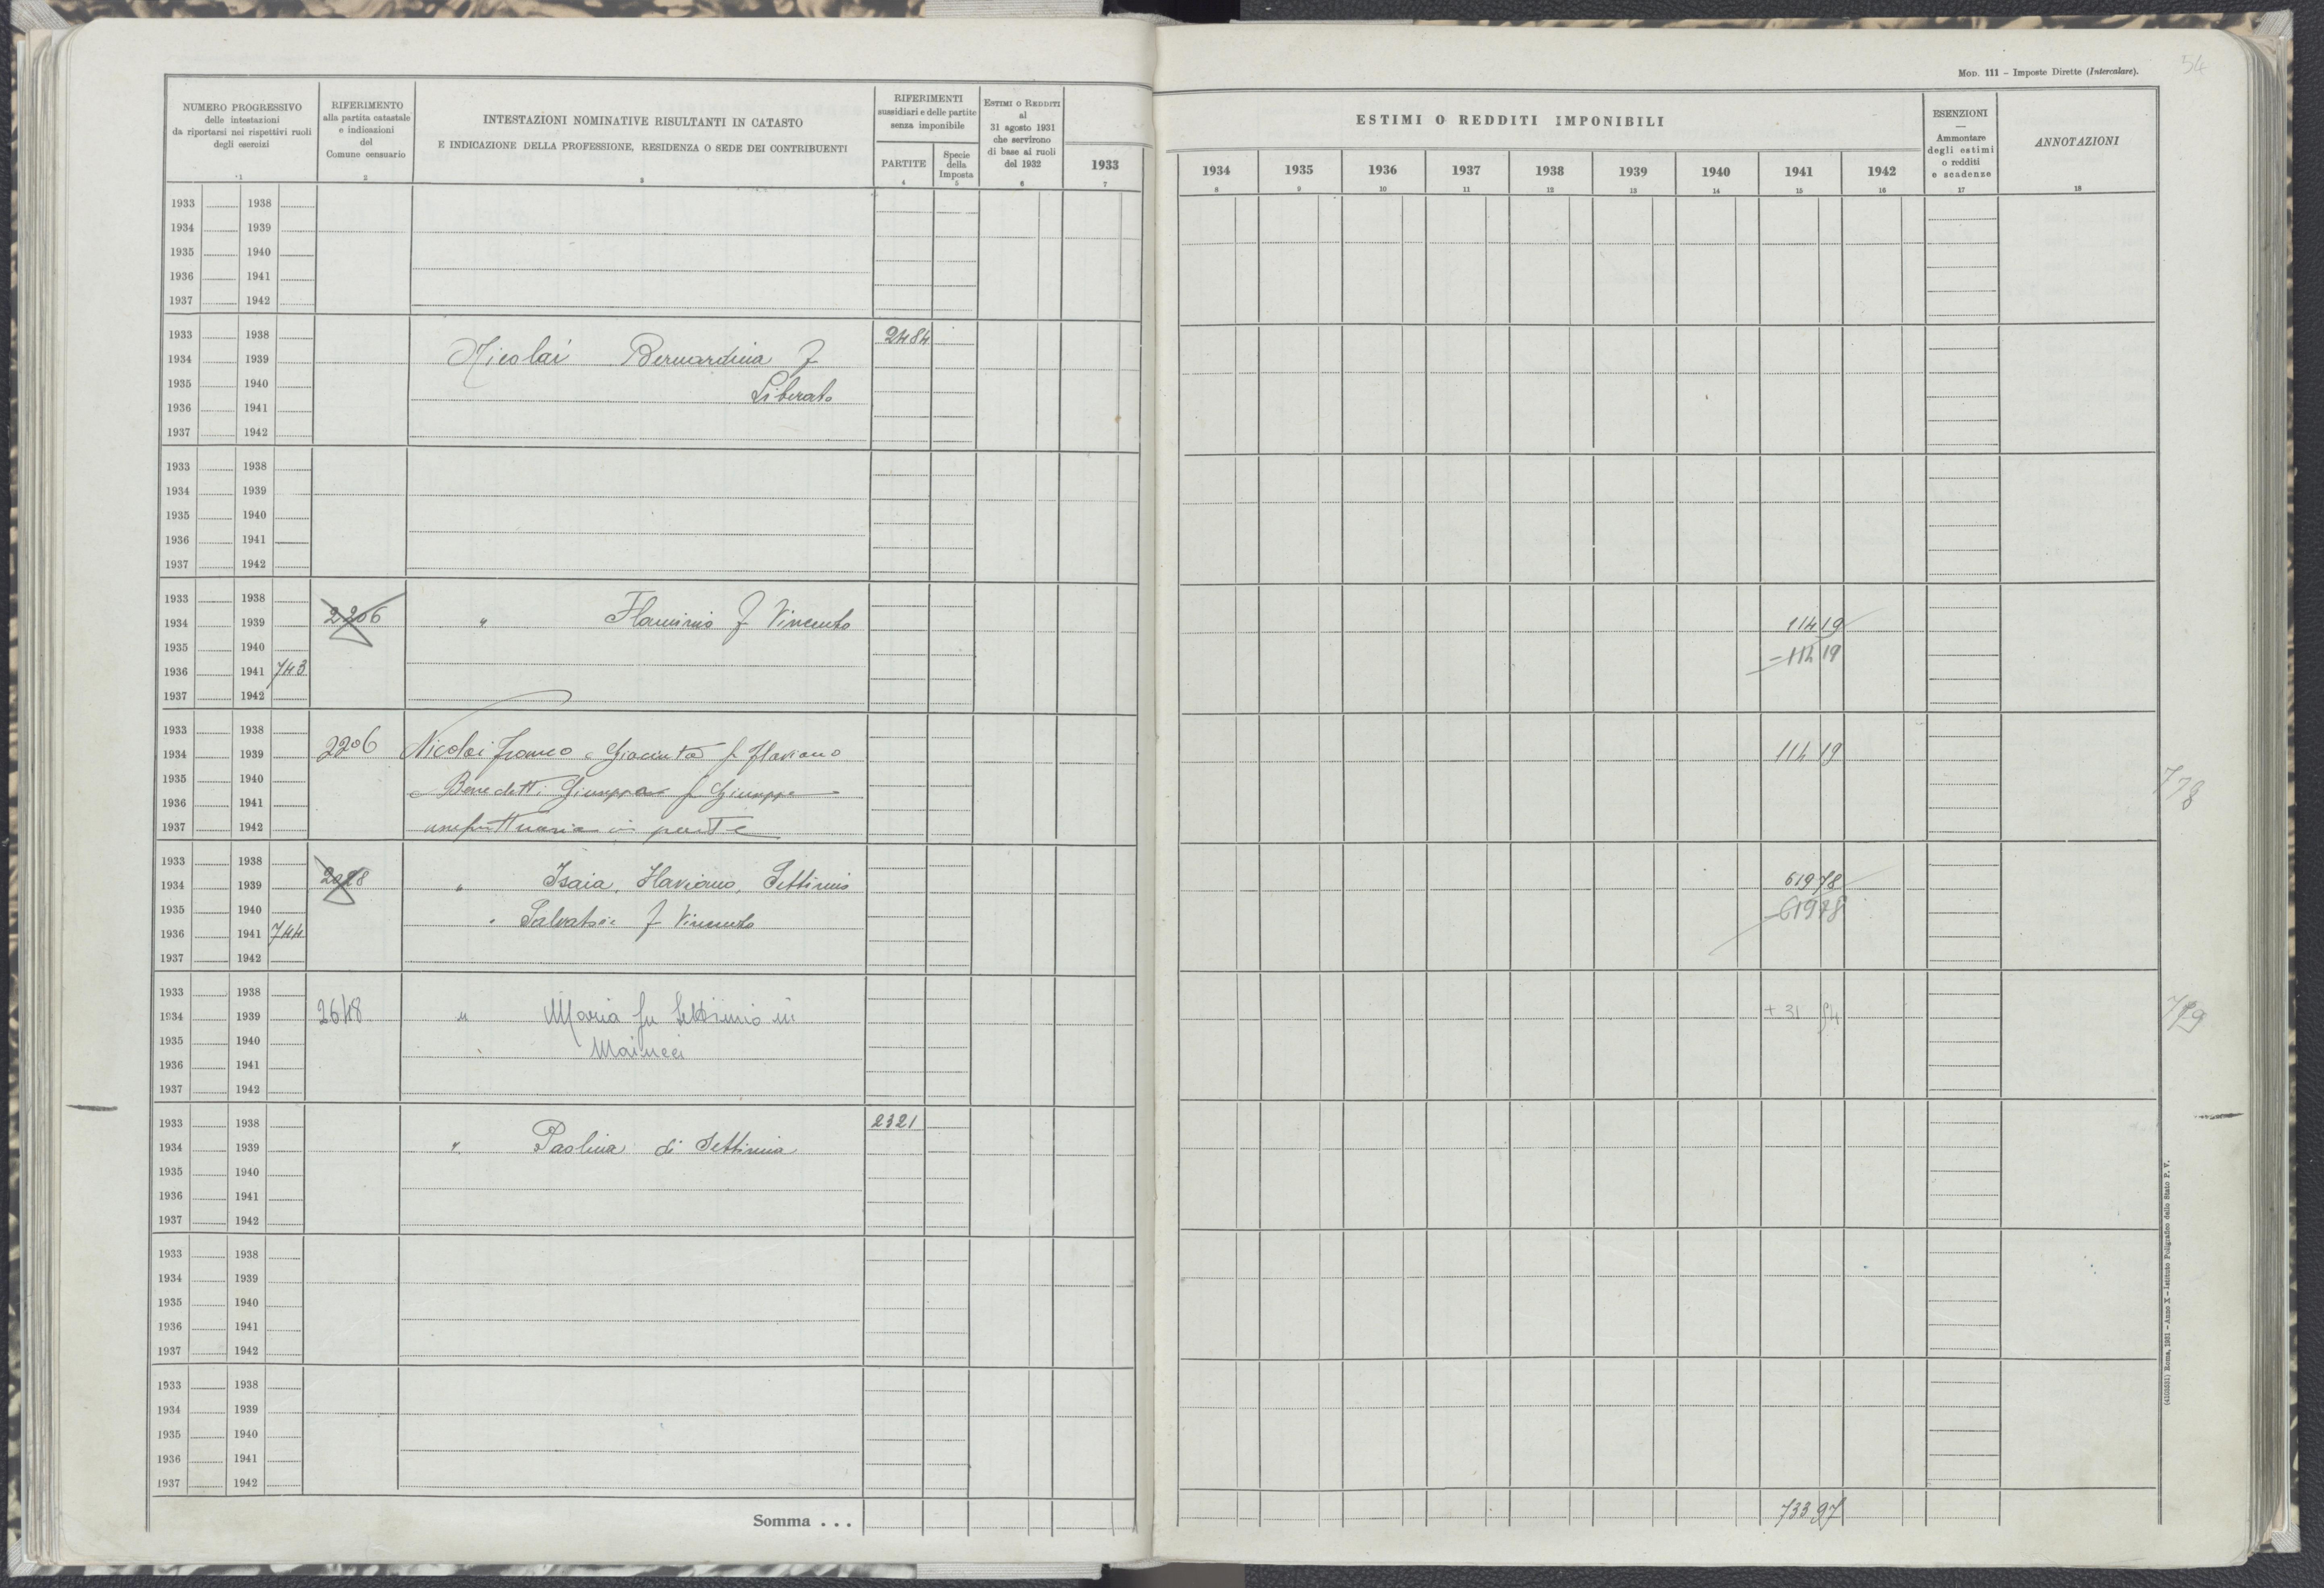 54
MOD. 111 – Imposte Dirette (Intercalare).
NUMERO PROGRESSIVO
delle intestazioni
da riportarsi nei rispettivi ruoli
degli esercizi
1
RIFERIMENTO
alla partita catastale
e indicazioni
del
Comune censuario
2
INTESTAZIONI NOMINATIVE RISULTANTI IN CATASTO
E INDICAZIONE DELLA PROFESSIONE, RESIDENZA O SEDE DEI CONTRIBUENTI
3
RIFERIMENTI
sussidiari e delle partite
senza imponibile
PARTITE
4
Specie
della
Imposta
5
ESTIMI O REDDITI
al
31 agosto 1931
che servirono
di base ai ruoli
del 1932
6
1933
7
ESTIMI O REDDITI IMPONIBILI
1934 1935 1936 1937 1938 1939 1940 1941 1942
8 9 10 11 12 13 14 15 16
ESENZIONI
—
Ammontare
degli estimi
o redditi
e scadenze
17
ANNOTAZIONI
18
1933 1938
1934 1939
1935 1940
1936 1941
1937 1942
1933 1938 2484
1934 1939 Nicolai Bernardina f
1935 1940 Liberato
1936 1941
1937 1942
1933 1938
1934 1939
1935 1940
1936 1941
1937 1942
1933 1938
1934 1939 2206 " Flaminio f Vincenzo 114 19
1935 1940 – 114 19
1936 1941 743
1937 1942
1933 1938
1934 1939 2206 Nicolai Franco e Giacinta f Flaviano 114 19
1935 1940 e Benedetti Giuseppa f Giuseppe 778
1936 1941
1937 1942 usufruttuaria in parte
1933 1938
1934 1939 " Isaia, Flaviano, Settimio 619 78
1935 1940 e Salvatore f Vincenzo – 619 78
1936 1941 744
1937 1942
1933 1938
1934 1939 2648 " Maria fu Settimio in + 31 54 779
1935 1940 Mainucci
1936 1941
1937 1942
1933 1938 2321
1934 1939 " Paolina di Settimia
1935 1940
1936 1941
1937 1942
1933 1938
1934 1939
1935 1940
1936 1941
1937 1942
1933 1938
1934 1939
1935 1940
1936 1941
1937 1942
Somma . . . 733 97
(4103531) Roma, 1931 – Anno X – Istituto Poligrafico dello Stato P. V.